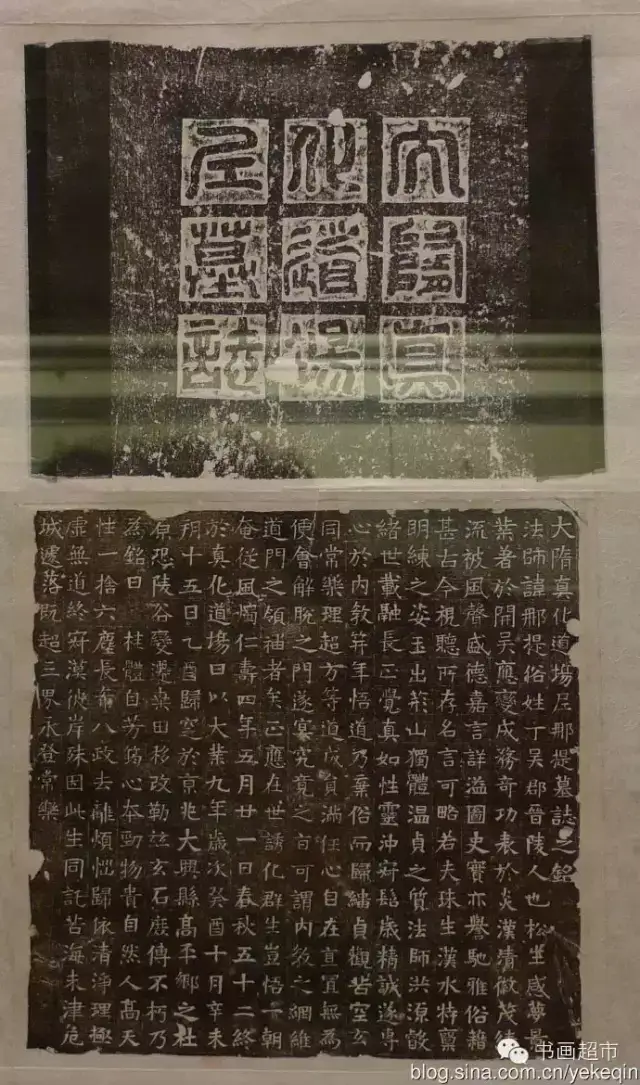 大隋真
化道場
尼墓誌
大隋真化道場尼那提墓誌之銘
法師諱那提俗姓丁吳郡晉陵人也松生感夢是
葉著於開吳應變成務奇功表於炎漢清徽茂緒
流被風聲盛德嘉言詳溢圖史實亦譽馳雅俗藉
甚古今視聽所存名言可略若夫珠生漢水特稟
明練之姿玉出荊山獨體溫貞之質法師洪源敻
緒世載融長正覺真如性靈沖寂髫歲精誠遂專
心於內教筓年悟道乃棄俗而歸緇貞觀苦空玄
同常樂理超方等道成負滿任心自在直置無為
便會解脫之門遂寔究竟之旨可謂內教之綱維
道門之領袖者矣正應在世誘化群生豈悟一朝
奄從風燭仁壽四年五月廿一日春秋五十二終
於真化道場曰以大業九年歲次癸酉十月辛未
朔十五日乙酉歸窆於京兆大興縣高平鄉之杜
原恐陵谷變遷桑田移改勒玆玄石庶傳不朽乃
為銘曰 桂體自芳筠心本勁物貴自然人高天
性一捨六塵長希八政去離煩惱歸依清淨理極
虛無道終寂漠彼岸殊因此生同託苦海未津危
城遽落既超三界永登常樂
书画超市
blog.sina.com.cn/yekeqin